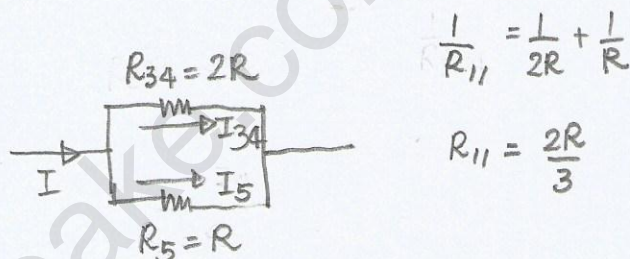 R34 = 2R
I34
I
I5
R5 = R
1/R11 = 1/2R + 1/R
R11 = 2R/3